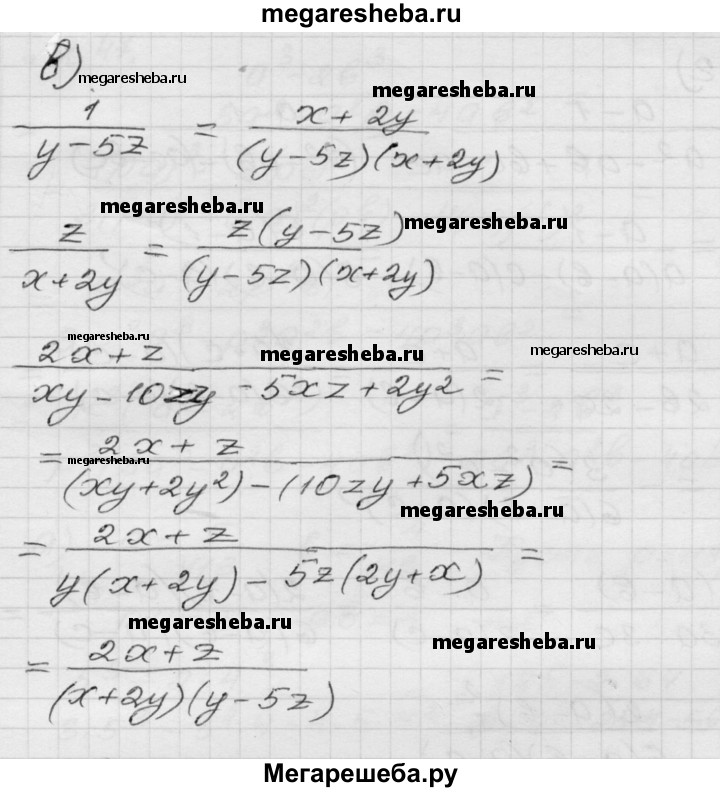 megaresheba.ru
в) megaresheba.ru
megaresheba.ru
1/(y-5z) = (x+2y)/((y-5z)(x+2y))
megaresheba.ru megaresheba.ru
z/(x+2y) = z(y-5z)/((y-5z)(x+2y))
megaresheba.ru megaresheba.ru megaresheba.ru
(2x+z)/(xy-10zy-5xz+2y2) =
megaresheba.ru
= (2x+z)/((xy+2y²)-(10zy+5xz)) =
megaresheba.ru
= (2x+z)/(y(x+2y)-5z(2y+x)) =
megaresheba.ru megaresheba.ru
= (2x+z)/((x+2y)(y-5z))
Мегарешеба.ру